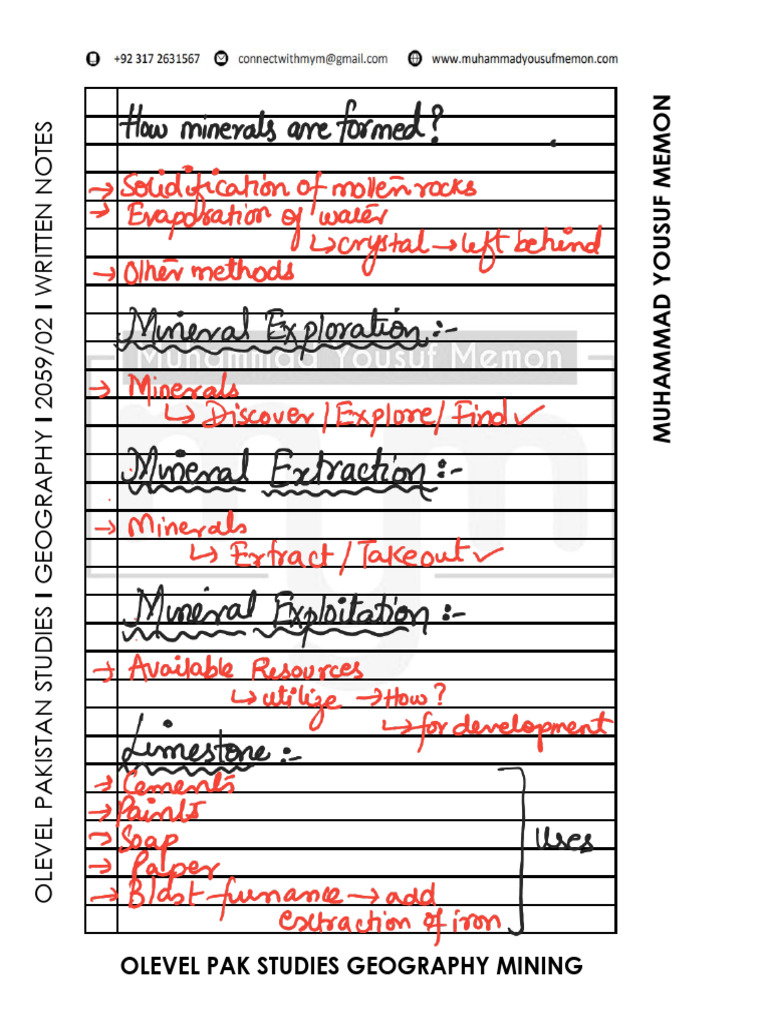 +92 317 2631567 connectwithmym@gmail.com www.muhammadyousufmemon.com
How minerals are formed?
→ Solidification of molten rocks
→ Evaporation of water
↳ crystal → left behind
→ Other methods
Mineral Exploration :-
Muhammad Yousuf Memon
→ Minerals
↳ Discover / Explore / Find ✓
Mineral Extraction :-
→ Minerals
↳ Extract / Takeout ✓
Mineral Exploitation :-
→ Available Resources
↳ utilize → How?
↳ for development
Limestone :-
→ Cements
→ Paints
→ Soap
→ Paper
→ Blast furnance → add
extraction of iron
Uses
OLEVEL PAK STUDIES GEOGRAPHY MINING
OLEVEL PAKISTAN STUDIES I GEOGRAPHY I 2059/02 I WRITTEN NOTES
MUHAMMAD YOUSUF MEMON
mym